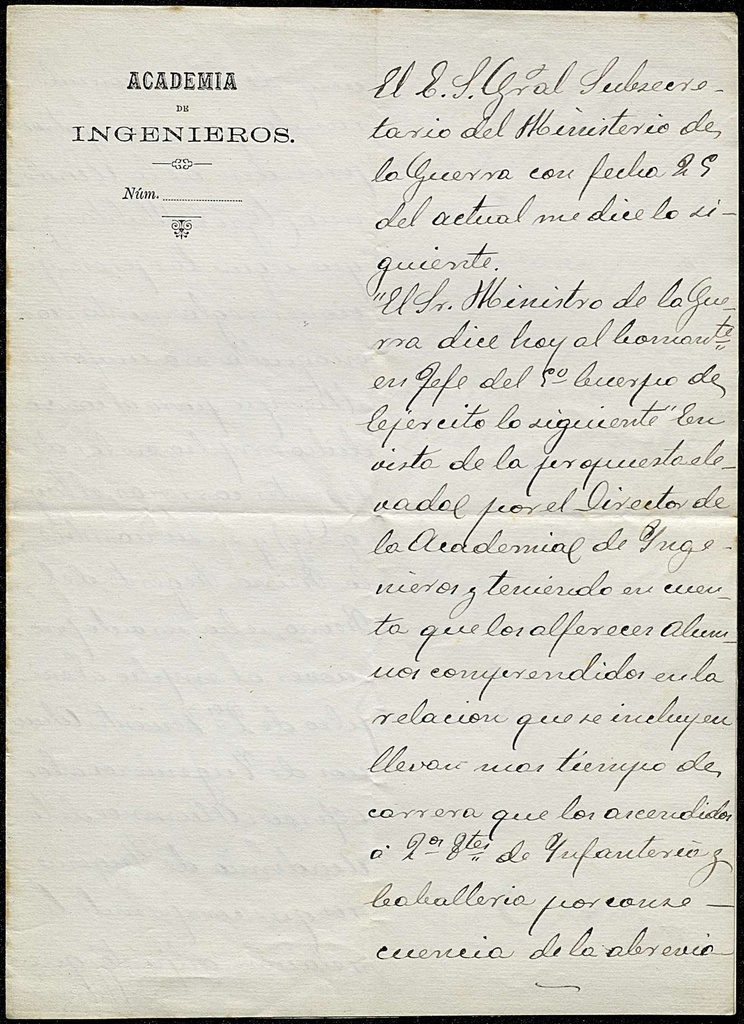 ACADEMIA
DE
INGENIEROS.
Núm.
El E. S. Gral Subsecre-
tario del Ministerio de
la Guerra con fecha 25
del actual me dice lo si-
guiente.
"El Sr. Ministro de la Gue-
rra dice hoy al Comante
en Jefe del 5º Cuerpo de
Ejército lo siguiente" En
vista de la propuesta ele-
vada por el Director de
la Academia de Inge-
nieros y teniendo en cuen-
ta que los alfereces alum-
nos comprendidos en la
relacion que se incluye en
llevan mas tiempo de
carrera que los ascendidos
á 2os Ttes de Infanteria y
Caballeria por conse-
cuencia de la abrevia